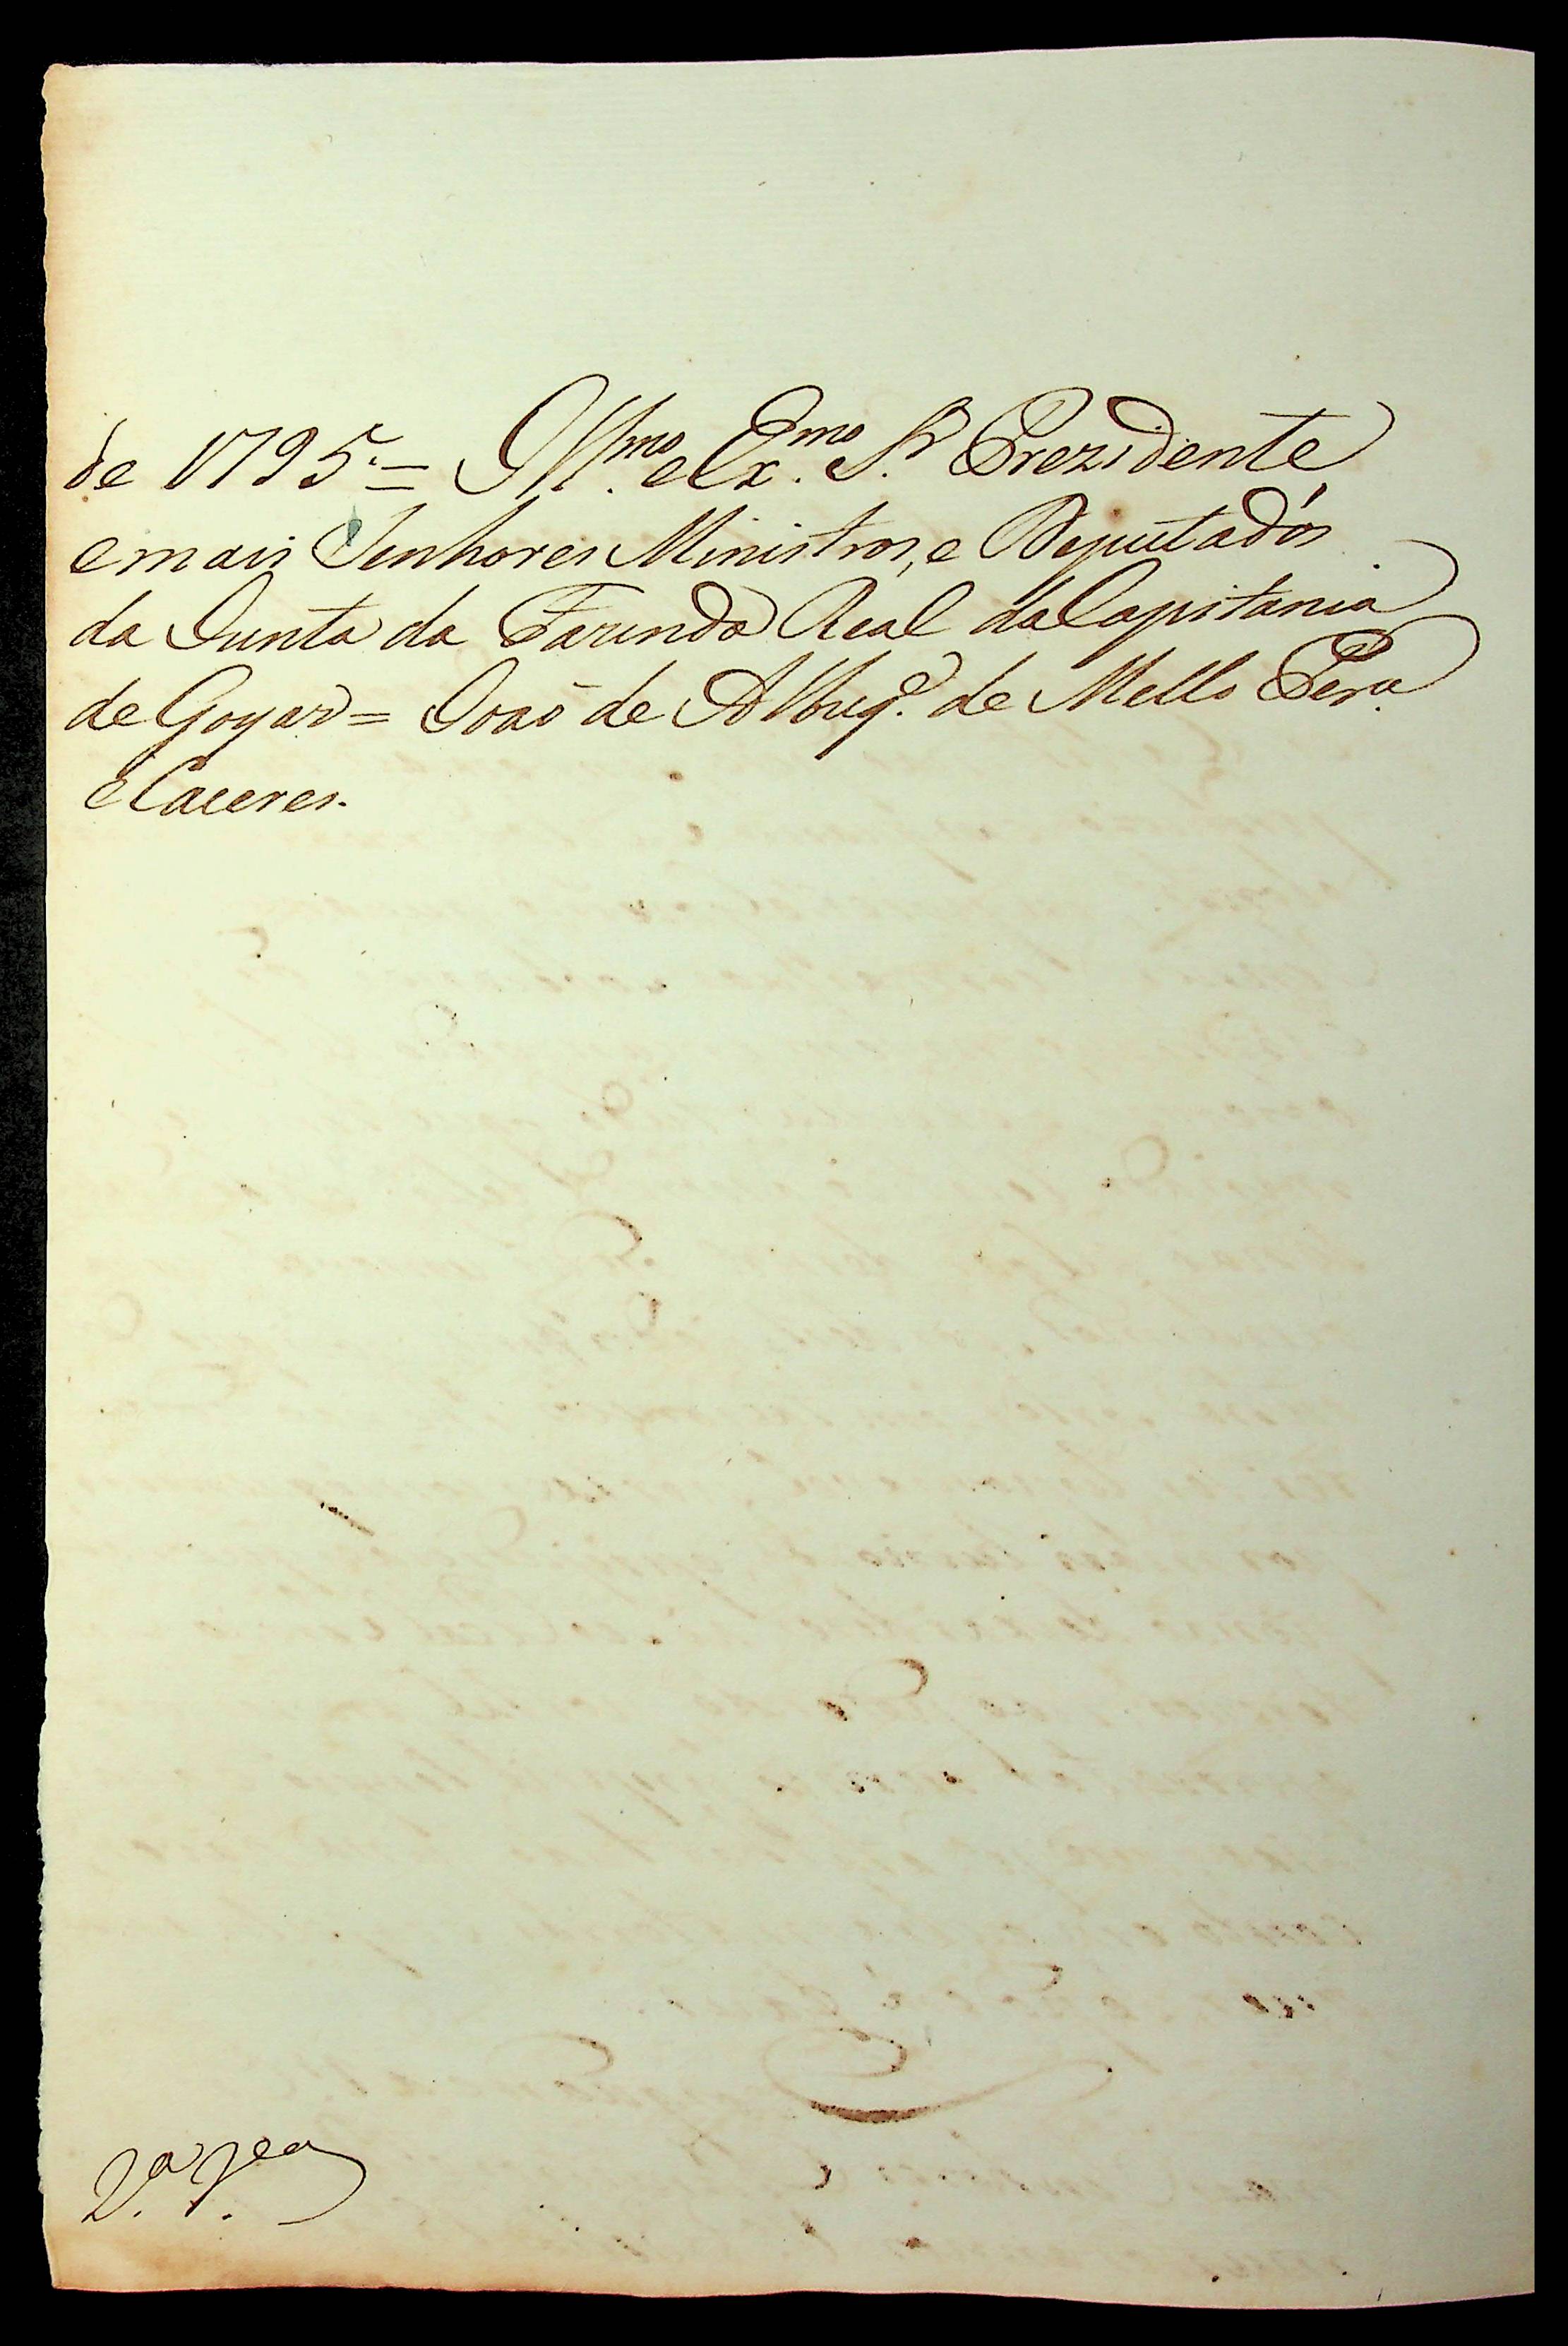 de 1795.= Illmo. eExmo. Sr. Prezidente,
emais Senhores Ministros, e Deputados
da Junta da Fazenda Real daCapitania
deGoyaz= Joaõ de Albuqe. de Mello Pera.
eCaceres.
2a.